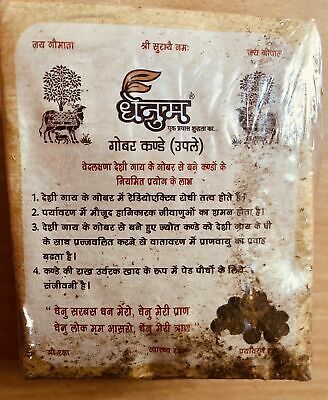 जय गौमाता श्री सुरायै नमः जय गोपाल
धेनुम्
एक प्रयास शुद्धता का..
गोबर कण्डे (उपले)
वेदलक्षणा देशी गाय के गोबर से बने कण्डों के
नियमित प्रयोग के लाभ
1. देशी गाय के गोबर में रेडियोएक्टिव रोधी तत्व होते है।
2. पर्यावरण में मौजूद हानिकारक जीवाणुओं का शमन होता है।
3. देशी गाय के गोबर से बने हुए ज्योत कण्डे को देशी गाय के घी
के साथ प्रज्जवलित करने से वातावरण में प्राणवायु का प्रवाह
बढता है।
4. कण्डे की राख उर्वरक खाद के रूप में पेड़ पौधों के लिये
संजीवनी है।
" धेनु सरबस धन मेरो, धेनु मेरी प्राण
धेनु लोक मम आसरो, धेनु मेरी त्राण "
गौ रक्षा स्वास्थ्य रक्षा पर्यावरण रक्षा